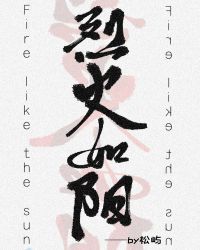 Fire like the sun
烈火如阳
Fire like the sun
——by松屿